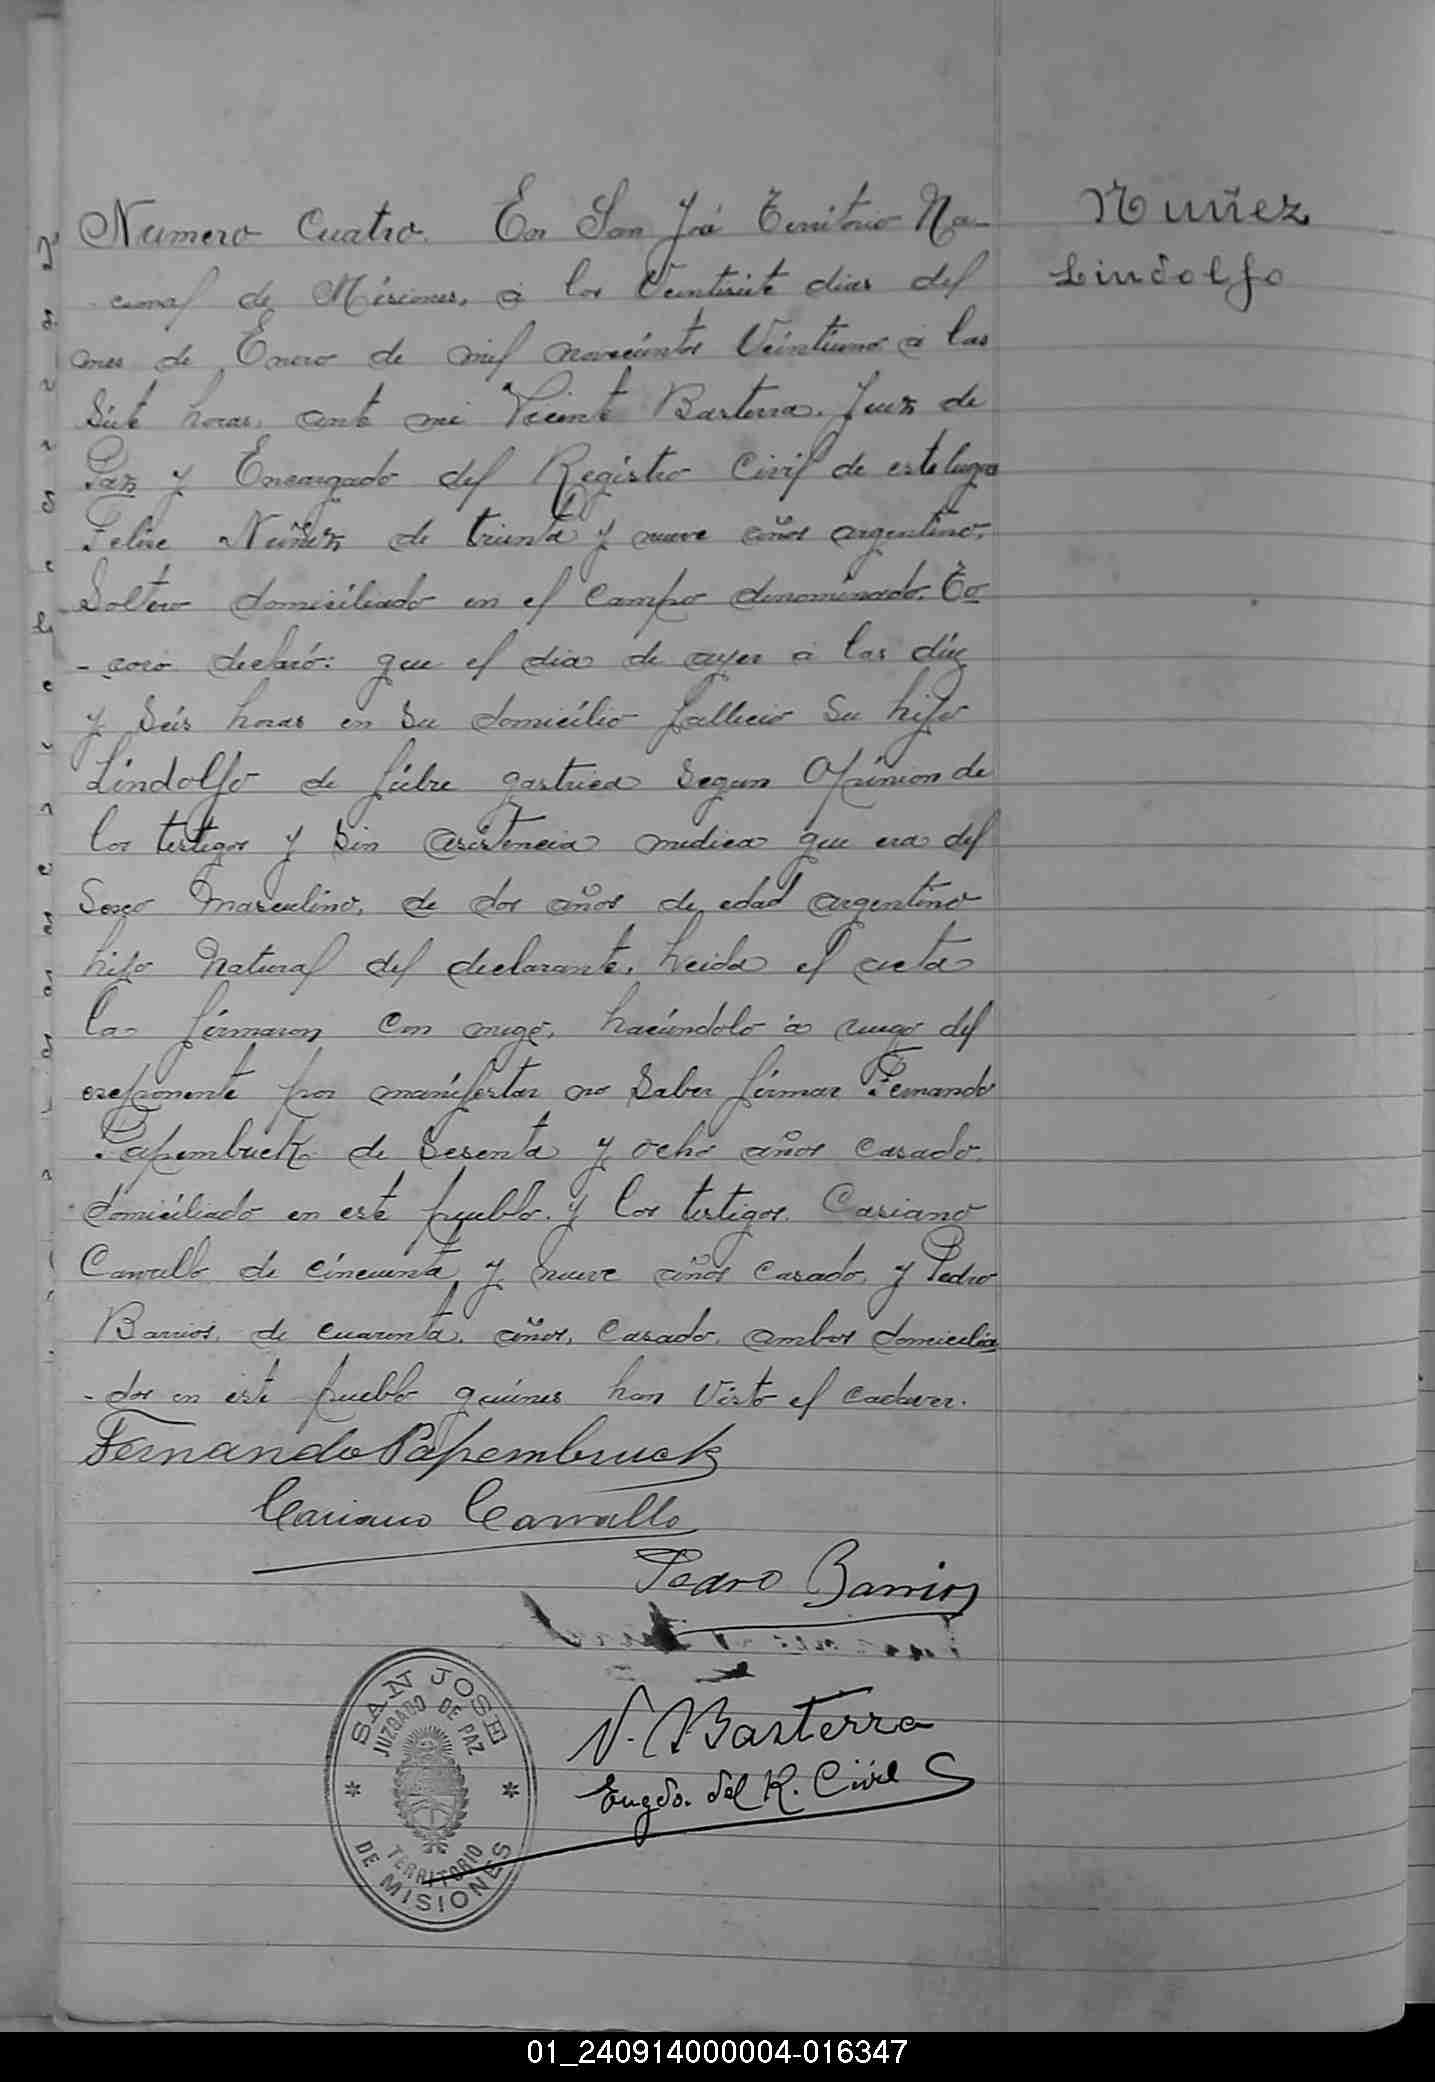 Nuñez
Lindolfo
Numero Cuatro. En San José Territorio Na-
-cional de Misiones, á los Veintisiete dias del
mes de Enero de mil novecientos Veintiuno á las
Siete horas, ante mi Vicente Basterra. Juez de
Paz y Encargado del Registro Civil de este lugar
Felipe Nuñez de treinta y nueve años argentino,
Soltero domiciliado en el Campo denominado,
declaró: que el dia de ayer á las diez
y Seis horas en su domicilio fallecio Su hijo
Lindolfo de fiebre gastrica Segun Opinion de
los testigos y Sin asistencia medica que era del
Sexo Masculino, de dos años de edad argentino
hijo Natural del declarante, Leida el acta
la firmaron Con migo, haciendolo á ruego del
exponente por manifestar no Saber firmar Fernando
Papembruck de Sesenta y ocho años Casado,
domiciliado en este pueblo. y los testigos. Casiano
Carvallo de Cincuenta y nueve años Casado, y Pedro
Barrios, de cuarenta, años, Casado, ambos domicilia
-dos en este pueblo quienes han Visto el Cadaver.
Fernando Papembruck
Casiano Carvallo
Pedro Barrios
V. Basterra
Engdo. del R. Civil
SAN JOSE
JUZGADO DE PAZ
TERRITORIO
DE MISIONES
01_240914000004-016347